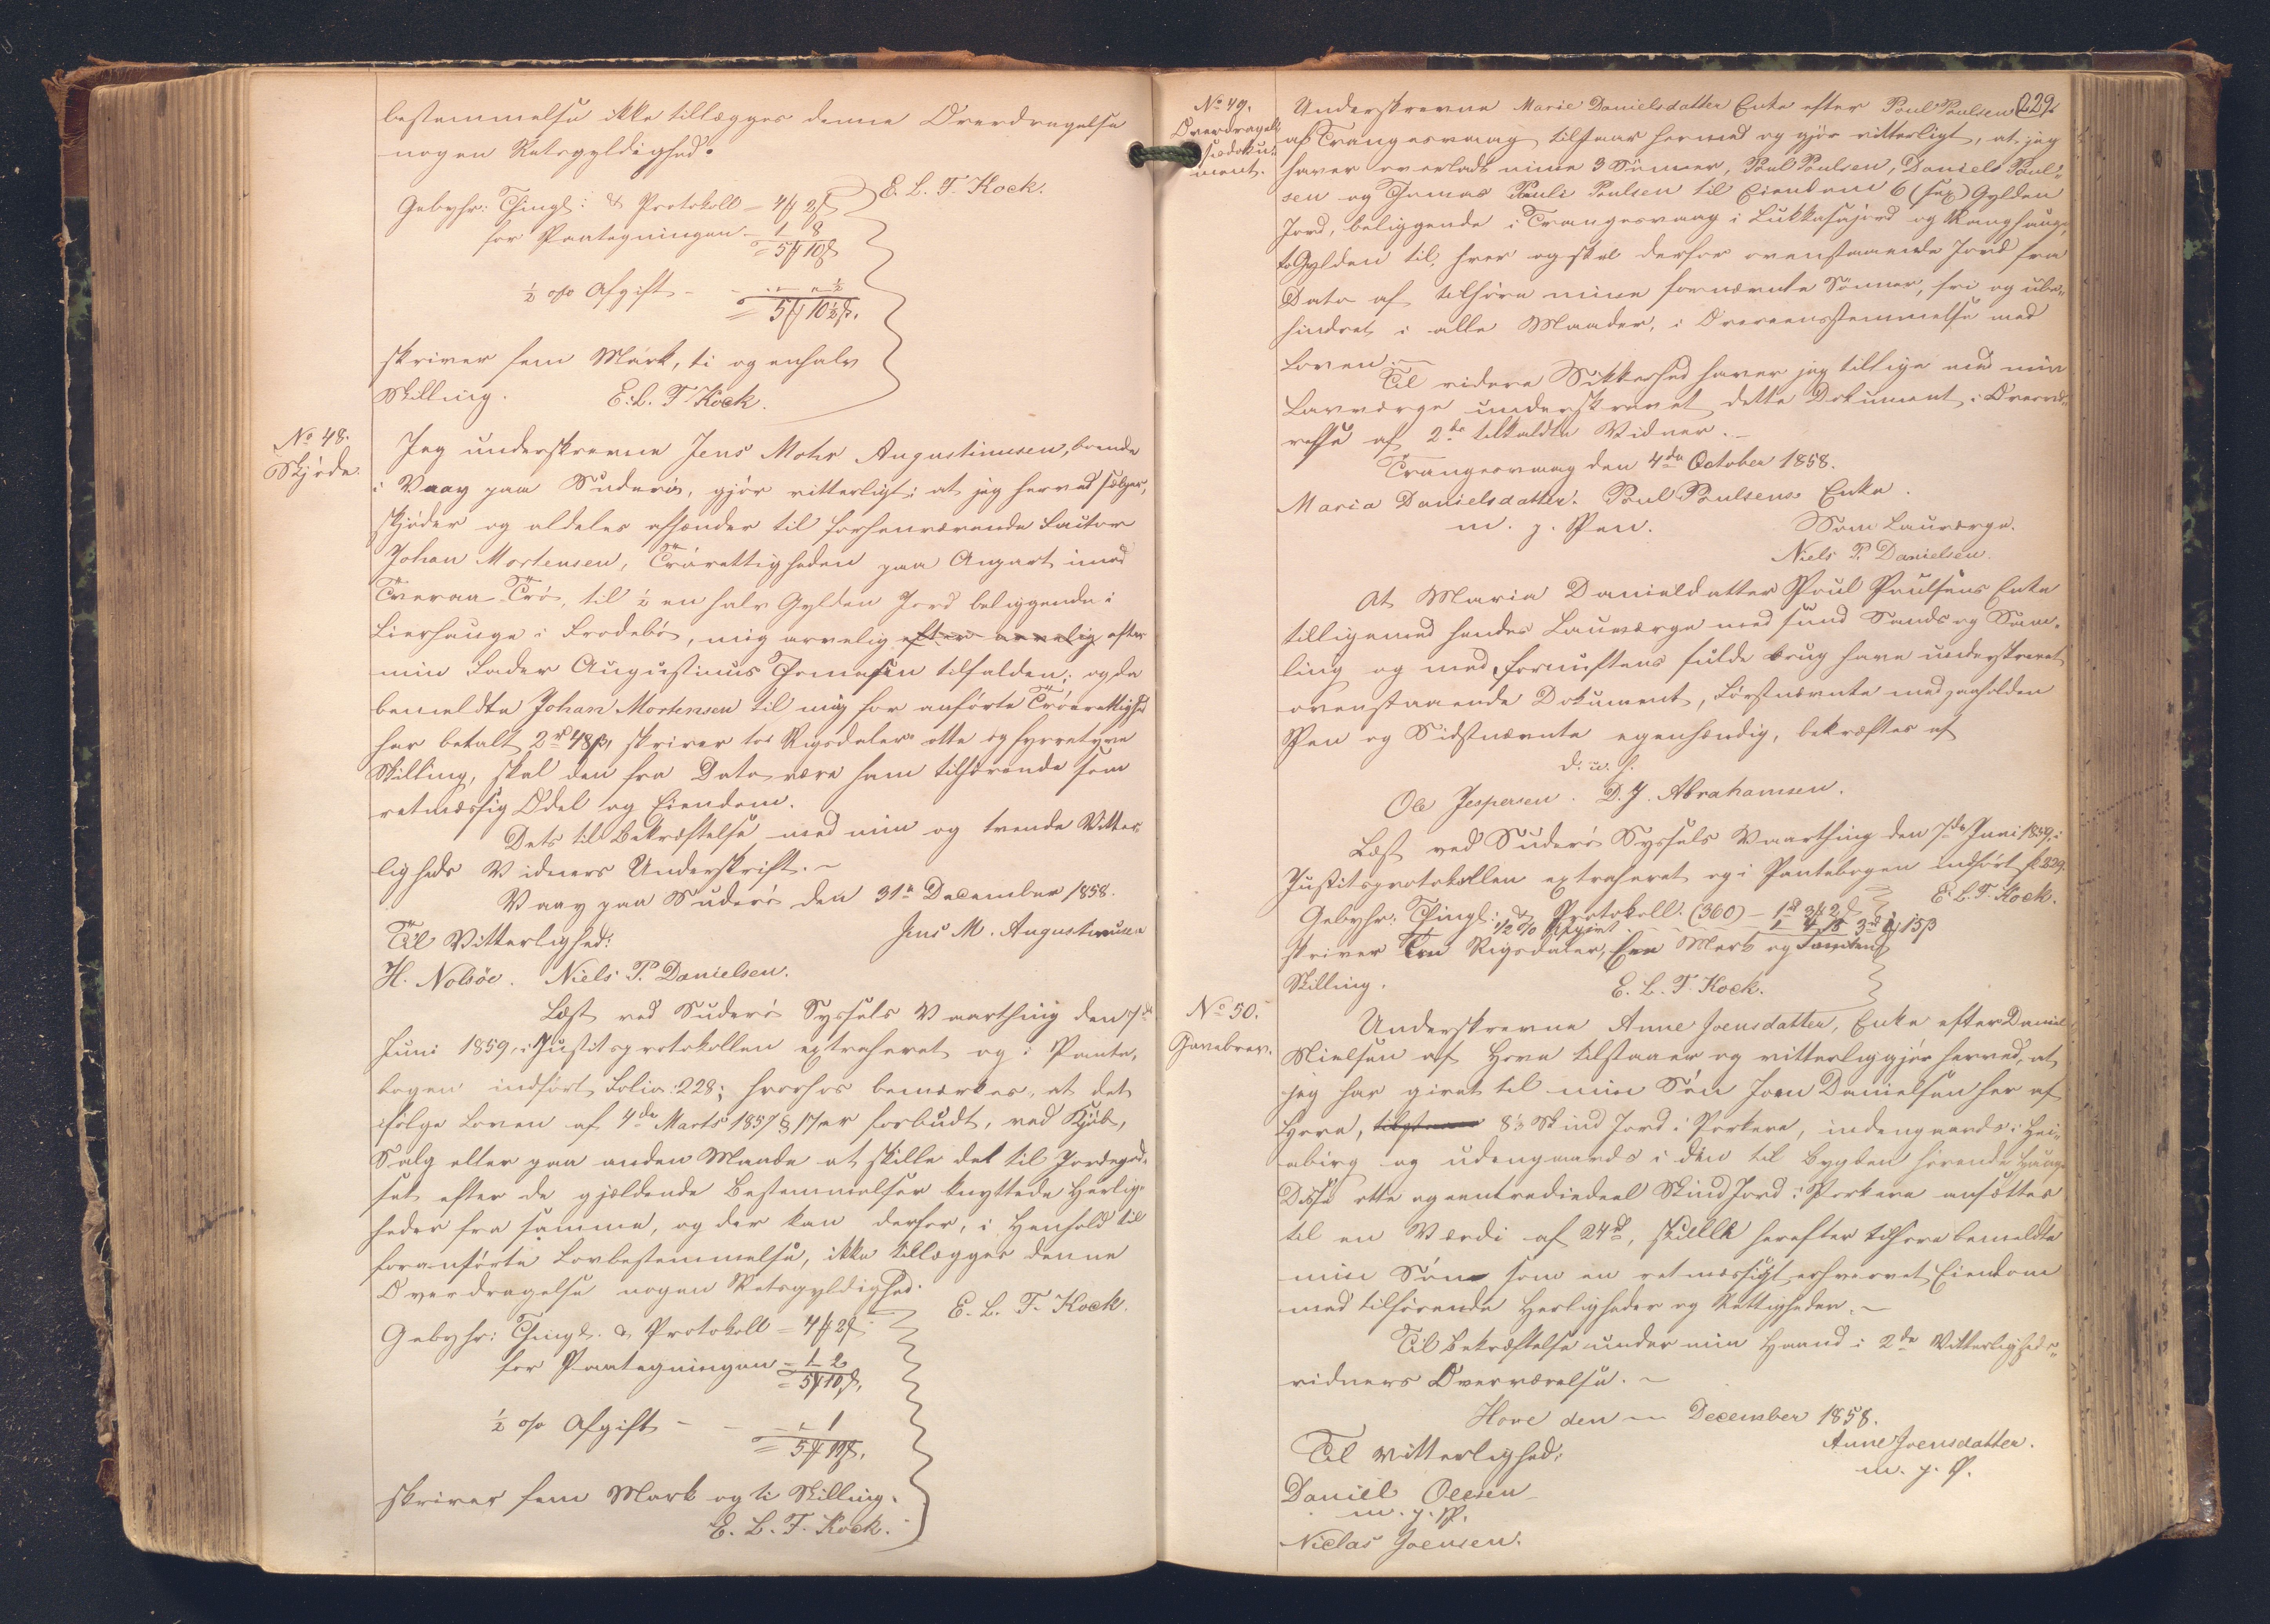 bestemmelse ikke tillægges denne Overdragelse
nogen Retsgyldighed.
E. L. T. Kock.
Gebyhr: Thingl: & Protokoll = 4 ₻ 2 ß
for Paategningen - 1 8
= 5 ₻ 10 ß
½ o/o Afgift - - " " ½
= 5 ₻ 10½ ß.
skriver fem Mark, ti og enhalv
Skilling. E. L. T. Kock.
No 48.
Skjøde.
Jeg underskrevne Jens Mohr Augustinusen, boende
i Vaag paa Suderö, gjör vitterligt: at jeg herved sælger,
skjøder og aldeles afhænder til forhenværende Factor
Johan Mortensen, Trörettigheden paa Anpart med
Tveraa-Trö, til ½ en halv Gylden Jord beliggende i
Lierhauge i Frodebö, mig arvelig efter arvelig efter
min Fader Augustinus Thomasen tilfalden; og da
bemeldte Johan Mortensen til mig for anförte Trörettighed
har betalt 2 rd 48 ß, skriver to Rigsdaler otte og fyrretyve
Skilling, skal den fra Dato være ham tilhörende som
retmæssig Odel og Eiendom.
Dets til Bekræftelse med min og tvende Vitter-
ligheds Vidners Underskrift. ~
Vaag paa Suderö den 31te December 1858.
Til Vitterlighed: Jens M. Augustinusen
H. Nolsöe. Niels P. Danielsen.
Læst ved Suderö Syssels Vaarthing den 7de
Juni 1859, i Justitsprotokollen extraheret og i Pante-
bogen indfört Folio: 228; hvorhos bemærkes, at det
ifölge Loven af 4de Marts 1857 § 17 er forbudt, ved Kjöb,
Salg eller paa anden Maade at skille det til Jordegod-
set efter de gjældende Bestemmelser knyttede Herlig-
heder fra samme, og der kan derfor, i Henhold til
foranförte Lovbestemmelse, ikke tillægges denne
Overdragelse nogen Retsgyldighed.
E. L. T. Kock.
Gebyhr: Thingl. & Protokoll = 4 ₻ 2 ß
for Paategningen - 1 2
= 5 ₻ 10 ß.
½ o/o Afgift - - " 1
= 5 ₻ 10 ß.
skriver fem Mark og ti Skilling.
E. L. T. Kock.
229.
No 49.
Overdragel-
sesdoku-
ment.
Underskrevne Marie Danielsdatter Enke efter Poul Poulsen
af Trangesvaag tilstaar hermed og gjör vitterligt, at jeg
haver overladt mine 3 Sönner, Poul Poulsen, Daniels Poul-
sen og Thomas Pauli Poulsen til Eiendom 6 (sex) Gylden
Jord, beliggende i Trangesvaag i Lukkasajord og Ranghauge,
to Gylden til hver og skal derfor ovenstaaende Jord fra
Dato af tilhöre mine fornævnte Sönner, fri og ube-
hindret i alle Maader, i Overensstemmelse med
Loven. ~
Til videre Sikkerhed haver jeg tillige med min
Lavværge underskrevet dette Dokument i Overvæ-
relse af 2de tilkaldte Vidner. ~
Trangesvaag den 4de October 1858.
Maria Danielsdatter. Poul Poulsens Enke.
m. p. Pen. Som Lauværge.
Niels P. Danielsen.
At Maria Danieldatter Poul Poulsens Enke
tilligemed hendes Lauværge med sund Sands og Sam-
ling og med fornuftens fulde brug have underskrevet
ovenstaaende Dokument, Förstnævnte med paaholden
Pen og Sidstnævnte egenhændig, bekræftes af
d. u. s.
Ole Jespersen. D. J. Abrahamsen.
Læst ved Suderö Syssels Vaarthing den 7de Juni 1859, i
Justitsprotokollen extraheret og i Pantebogen indfört fol. 229.
E. L. T. Kock.
Gebyhr: Thingl: & Protokoll. (360) - 1 rd 3 ₻ 2 ß
½ % Afgivt 1 4 13 3 rd 1 ₻ 15 ß
skriver Tre Rigsdaler, Een Mark og Femten
Skilling.
E. L. T. Kock.
No 50.
Gavebrev.
Underskrevne Anne Joensdatter, Enke efter Daniel
Nielsen af Hove tilstaaer og vitterliggjör herved, at
jeg har givet til min Sön Joen Danielsen her af
Hove, 8⅓ Skind Jord i Porkere, indengaards i Hei-
abirg og udengaards i den til Bygden hörende Hauge
Disse otte og eentrediedeel Skind Jord i Porkere ansættes
til en Værdi af 24 rd, skulle herefter tilhöre bemeldte
min Sön som en retmæssigt erhvervet Eiendom
med tilhörende Herligheder og Rettigheder. ~
Til Bekræftelse under min Haand i 2de Vitterligheds-
vidners Overværelse. ~
Hove den ~ December 1858.
Til Vitterlighed: Anne Joensdatter.
m. p. P.
Daniel Olesen
m. p. P.
Niclas Joensen.